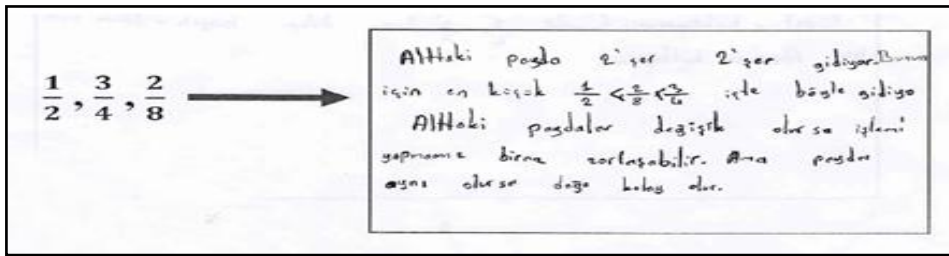 1/2, 3/4, 2/8
Alttaki payda 2'şer 2'şer gidiyor. Bunun
için en küçük 1/2 < 2/8 < 3/4 işte böyle gidiyo
Alttaki paydalar değişik olursa işlemi
yapmamız biraz zorlaşabilir. Ama payda
aynı olursa daha kolay olur.